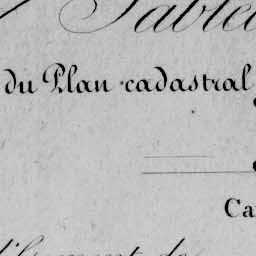 Tablea
du Plan cadastral
Ca